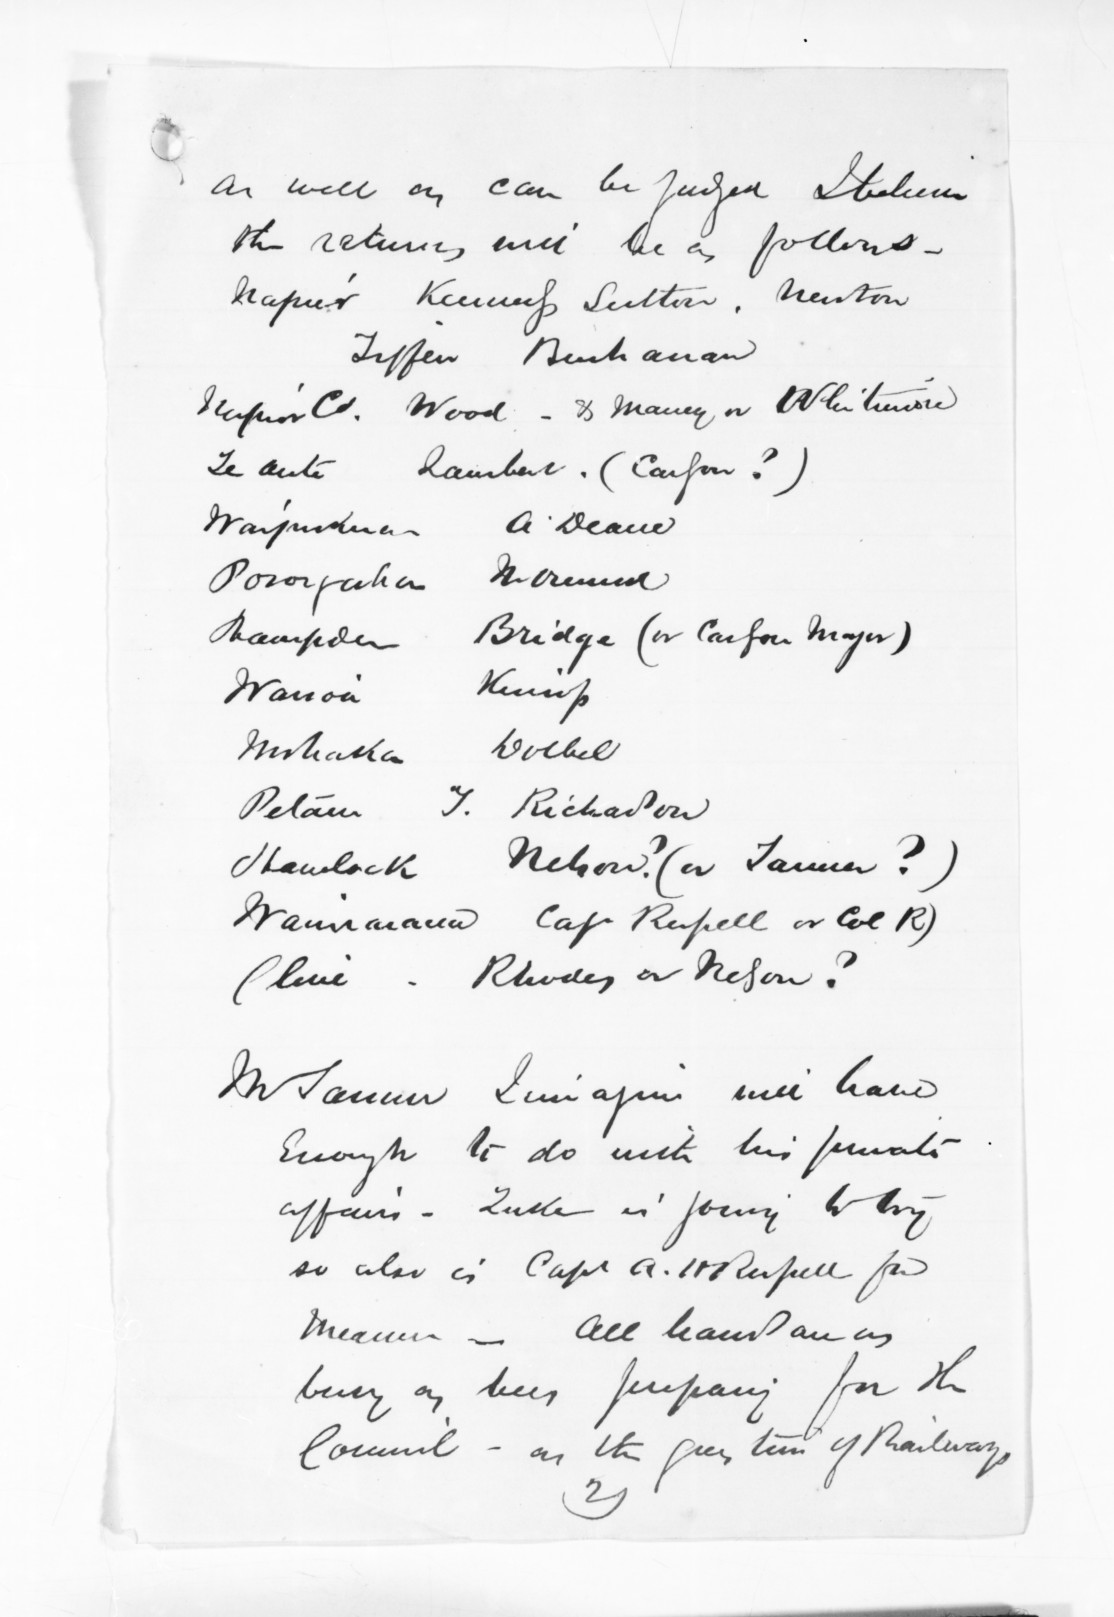 as well as can be judged I believe
the returns will be as follows -
Napier Kennedy Sutton, Newton
Tiffen Buchanan
Napier Co. Wood - & Maney or Whitmore
Te Aute Lambert. (Carlyon ?)
Waipukurau A. Deane
Porongahau Ormond
Hampden Bridge (or Carlyon Major)
Wairoa Kinross
Mohaka Dolbel
Petane T. Richardson
Havelock Nelson? (or Tanner ?)
Waimarama Capt Russell or Col R)
Clive - Rhodes or Nelson ?
Mr Tanner I imagine will have
enough to do with his private
affairs - is going to try
so also is Capt A. H Russell for
Meanee - All hands are as
busy as bees preparing for the
Council - as the question of Railways
2)